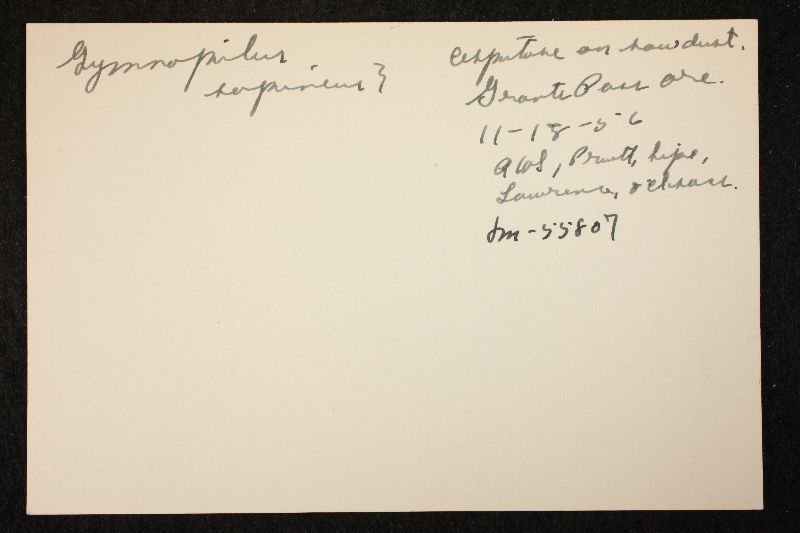 Gymnopilus
sapineus ?
Cespitose on sawdust.
Grants Pass Ore.
11-18-56
AHS, Pruitt, Sipe,
Lawrence, &
Sm-55807